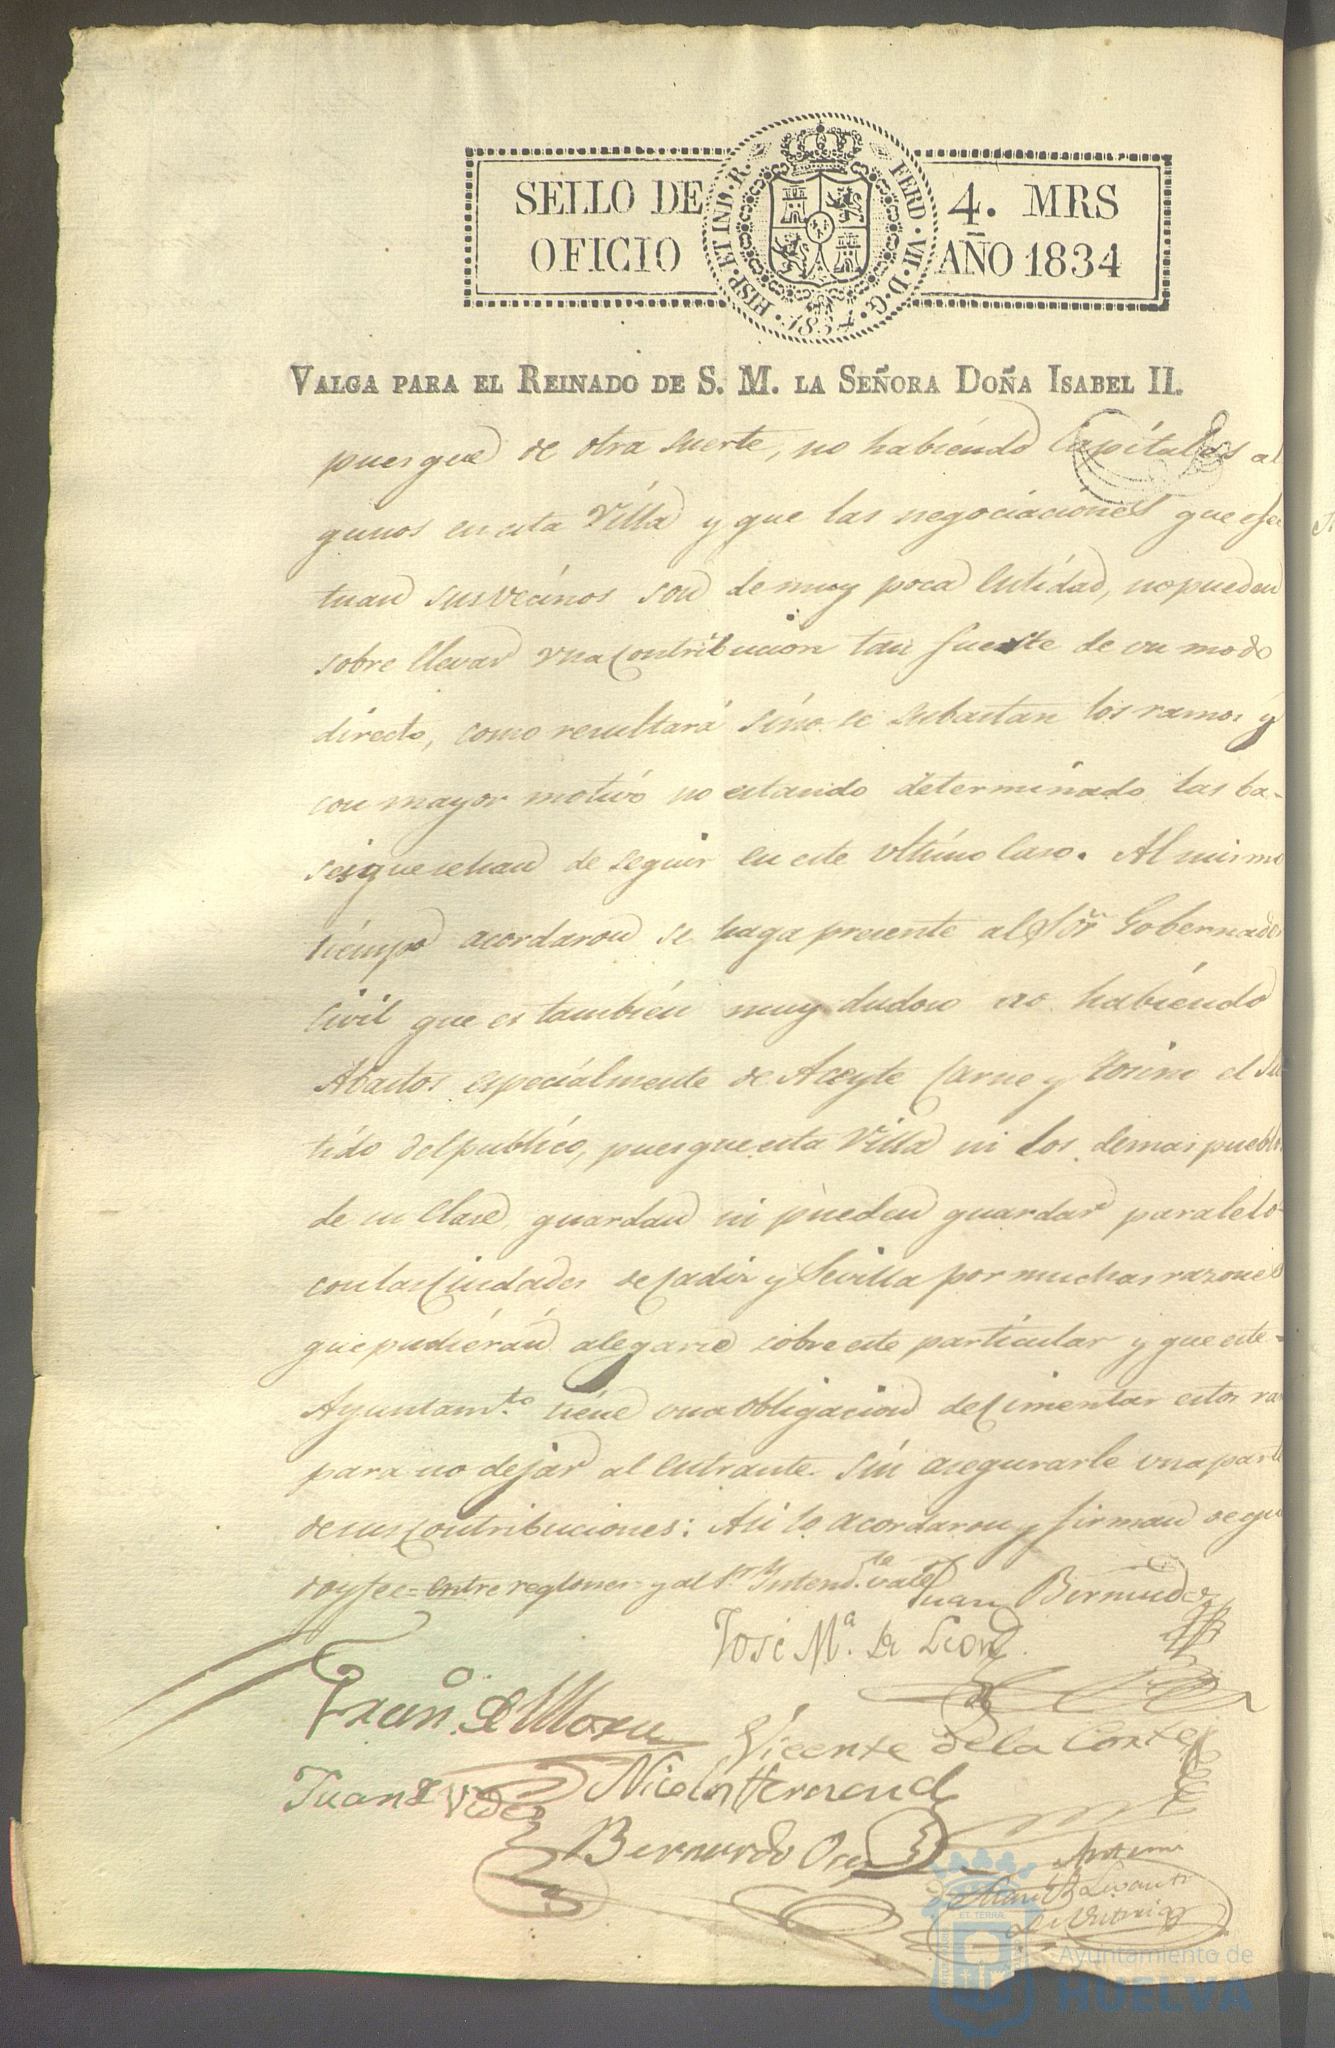 SELLO DE OFICIO
HISP. ET IND. R. FERD. VII. D. G. 1834
4. MRS
AÑO 1834
VALGA PARA EL REINADO DE S. M. LA SEÑORA DOÑA ISABEL II.
puesque de otra suerte, no habiendo Capitales al
gunos en esta Villa y que las negociaciones que efec
tuan sus vecinos son de muy poca Entidad, no pueden
sobre llevar una Contribucion tan fuerte de un modo
directo, como resultará sino se subastan los ramos y
con mayor motivo no estando determinado las ba-
ses que se han de seguir en este ultimo Caso. Al mismo
tiempo acordaron se haga presente al Sor Gobernador
Civil que es tambien muy dudoso no habiendo
Abastos especialmente de Aceyte Carne y tosino el su
tido del publico, puesque esta Villa ni los demas pueblos
de su Clase, guardan ni pueden guardar paralelo
con las Ciudades de Cadiz y Sevilla por muchas razones
que pudierán alegarse sobre este particular y que este
Ayuntamto. tiene una obligacion de Cimentar estos ra
para no dejar al Entrante sin asegurarle una parte
de sus Contribuciones: Asi lo acordaron y firman de que
doy fee = entre reglones = y al Sr. Intend.te vale
Juan Bermudez
José Ma. de Leon
Fran.co de Mora
Vicente de la Corte
Juan de
Nicolas Hernand
Bernardo
Ante mi
ET TERRA
Ayuntamiento de
HUELVA